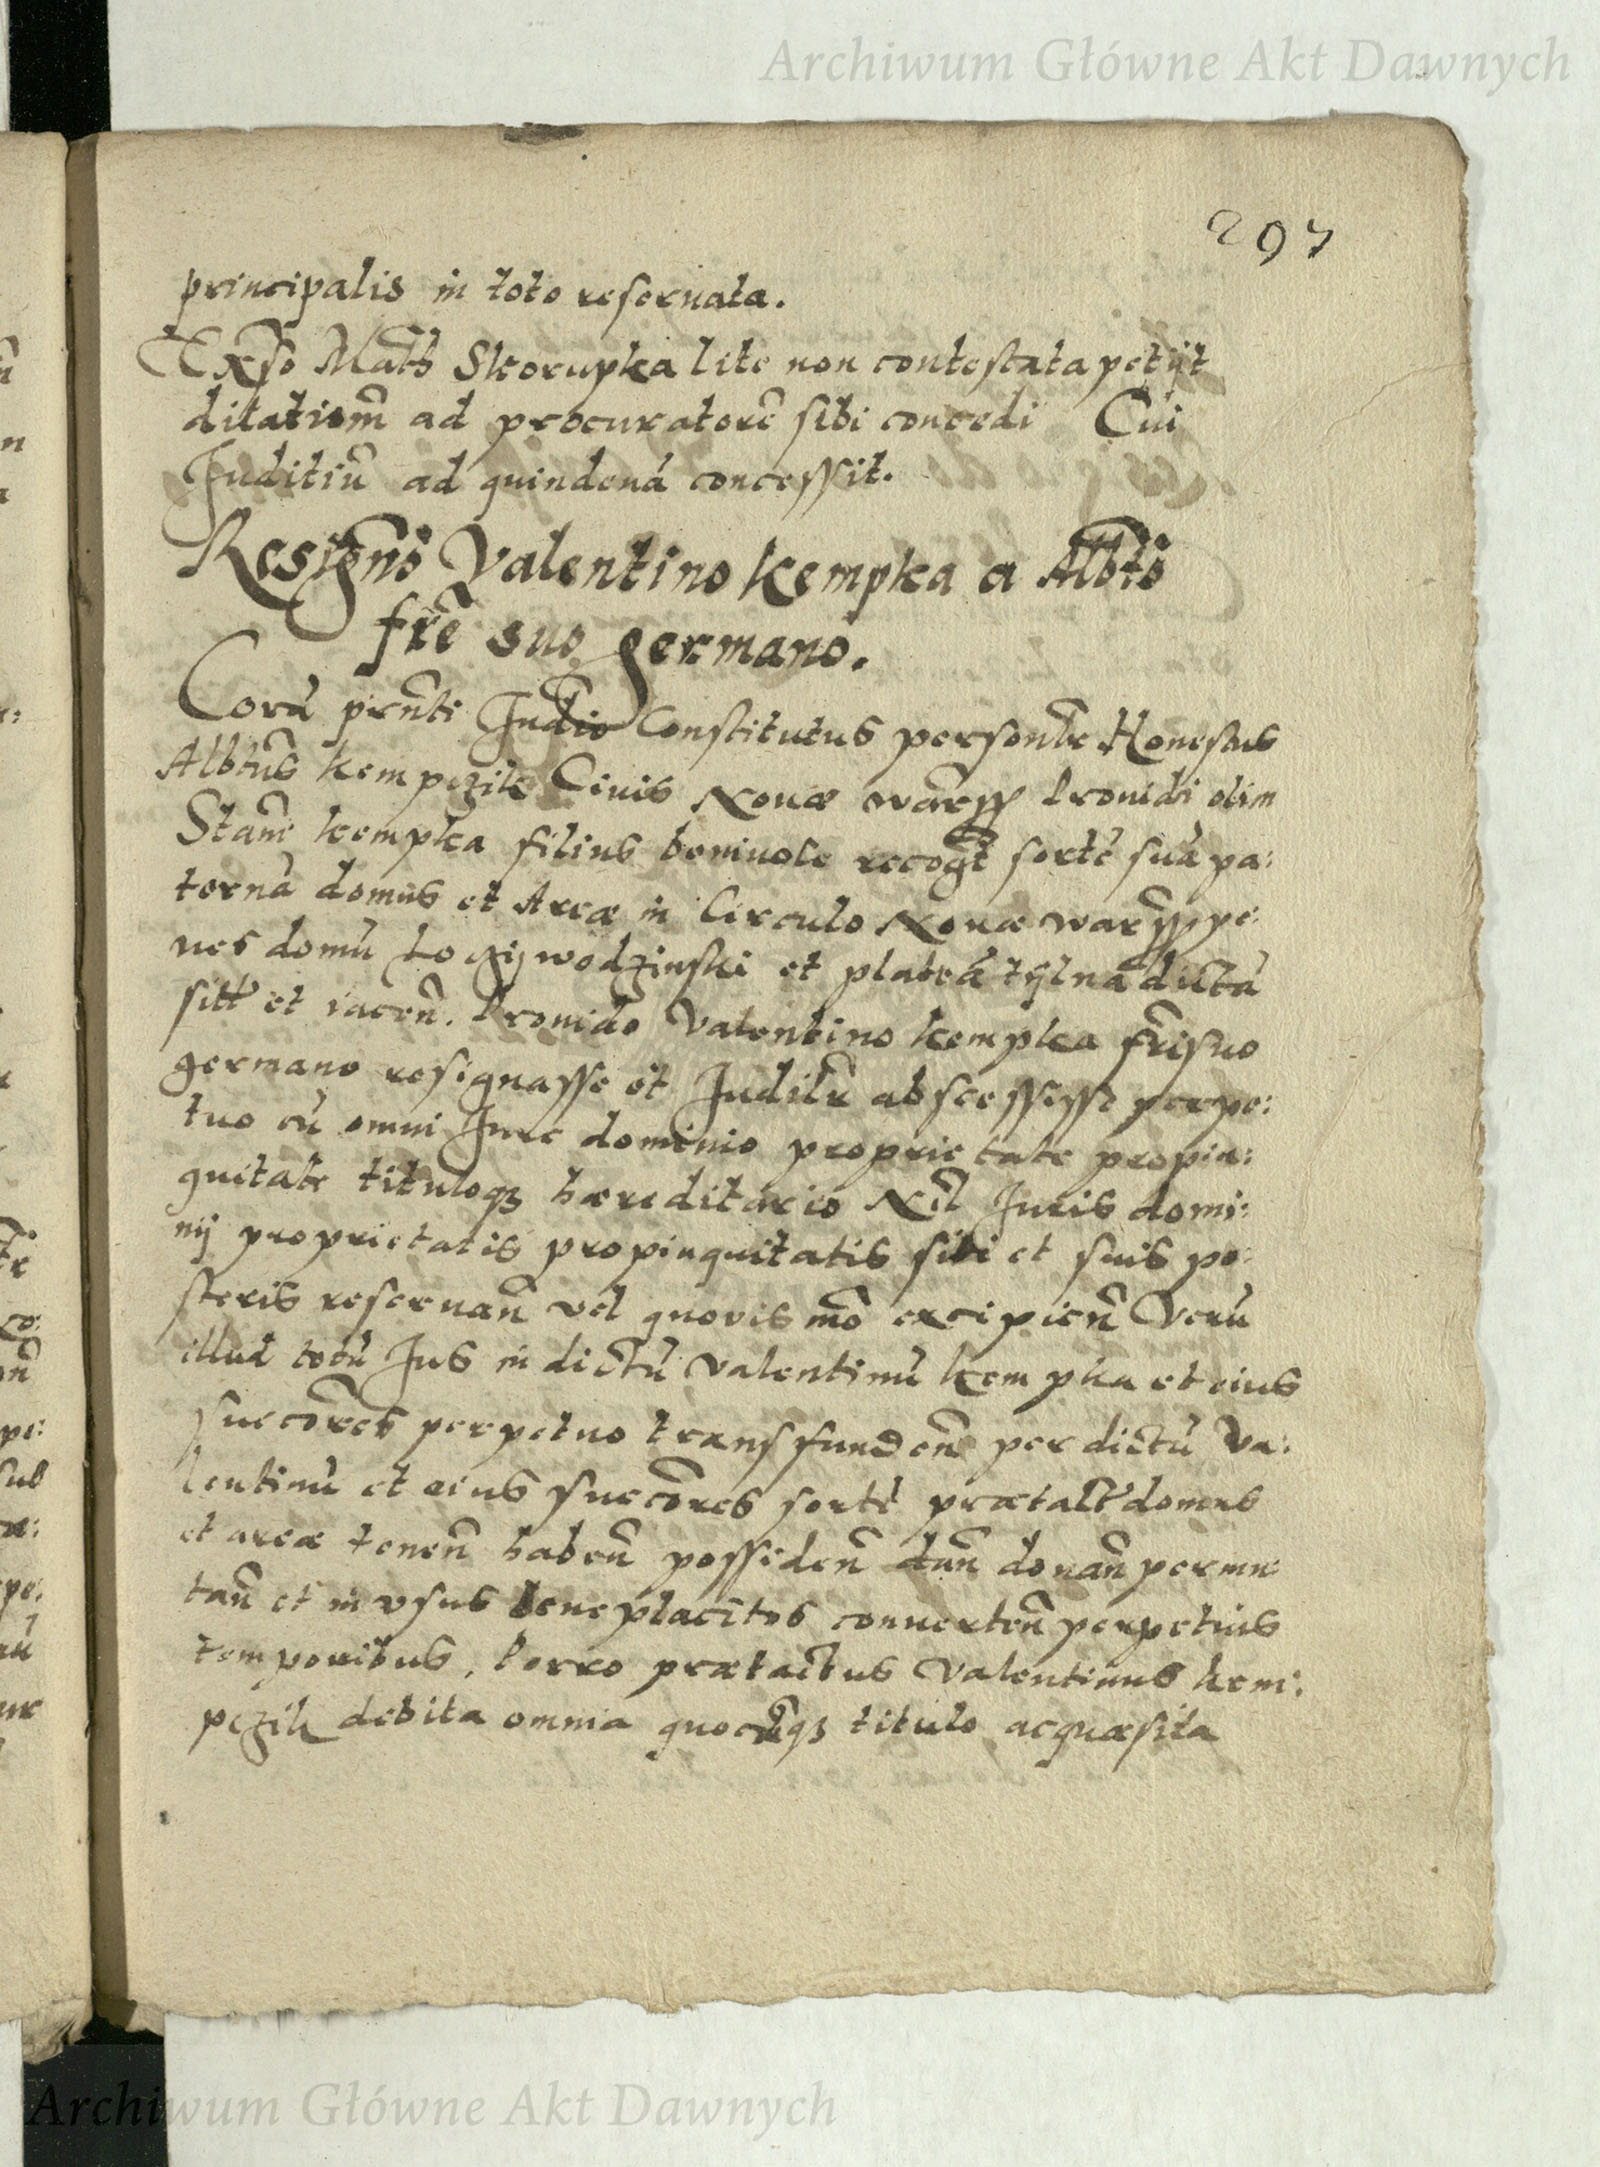 Archiwum Główne Akt Dawnych
297
principalis in toto reseruata.
Exso Math Skorupka lite non contestata petijt
dilatiom̃ ad procuratorẽ sibi concedi Cui
Juditiũ ad quindenã concessit.
Resigño Valentino Kempka a Albto
fr̃e suo germano.
Corã prñti Judio Constitutus personlr Honestus
Albtus kempczik Ciuis Nouæ Warss Prouidi olim
Stani kempka filius beniuole recogt sortẽ suã pa:
ternã domus et Areæ in Circulo Nouæ Warss pe:
nes domũ et plateã tÿlna dictã
sitt et iaceñ. Prouido Valentino kempka fr̃i suo
germano resignasse et Juditlr abscessisse perpe:
tuo cũ omni Jure dominio proprietate propin:
quitate tituloqȝ hæreditario Nil Juris domi:
nij proprietatis propinquitatis sibi et suis po:
steris reseruañ vel quouis mõ excipieñ Verũ
illud totũ Jus in dictũ Valentinũ kempka et eius
succores perpetuo transfundeñ per dictũ Va:
lentinũ et eius succores sortẽ prætact domus
et areæ teneñ habeñ possideñ dañ donañ permu:
tañ et in vsus beneplacitos conuerteñ perpetuis
temporibus. Porro prætactus Valentinus kem:
pczik debita omnia quocũqȝ titulo acquæsita
Archiwum Główne Akt Dawnych